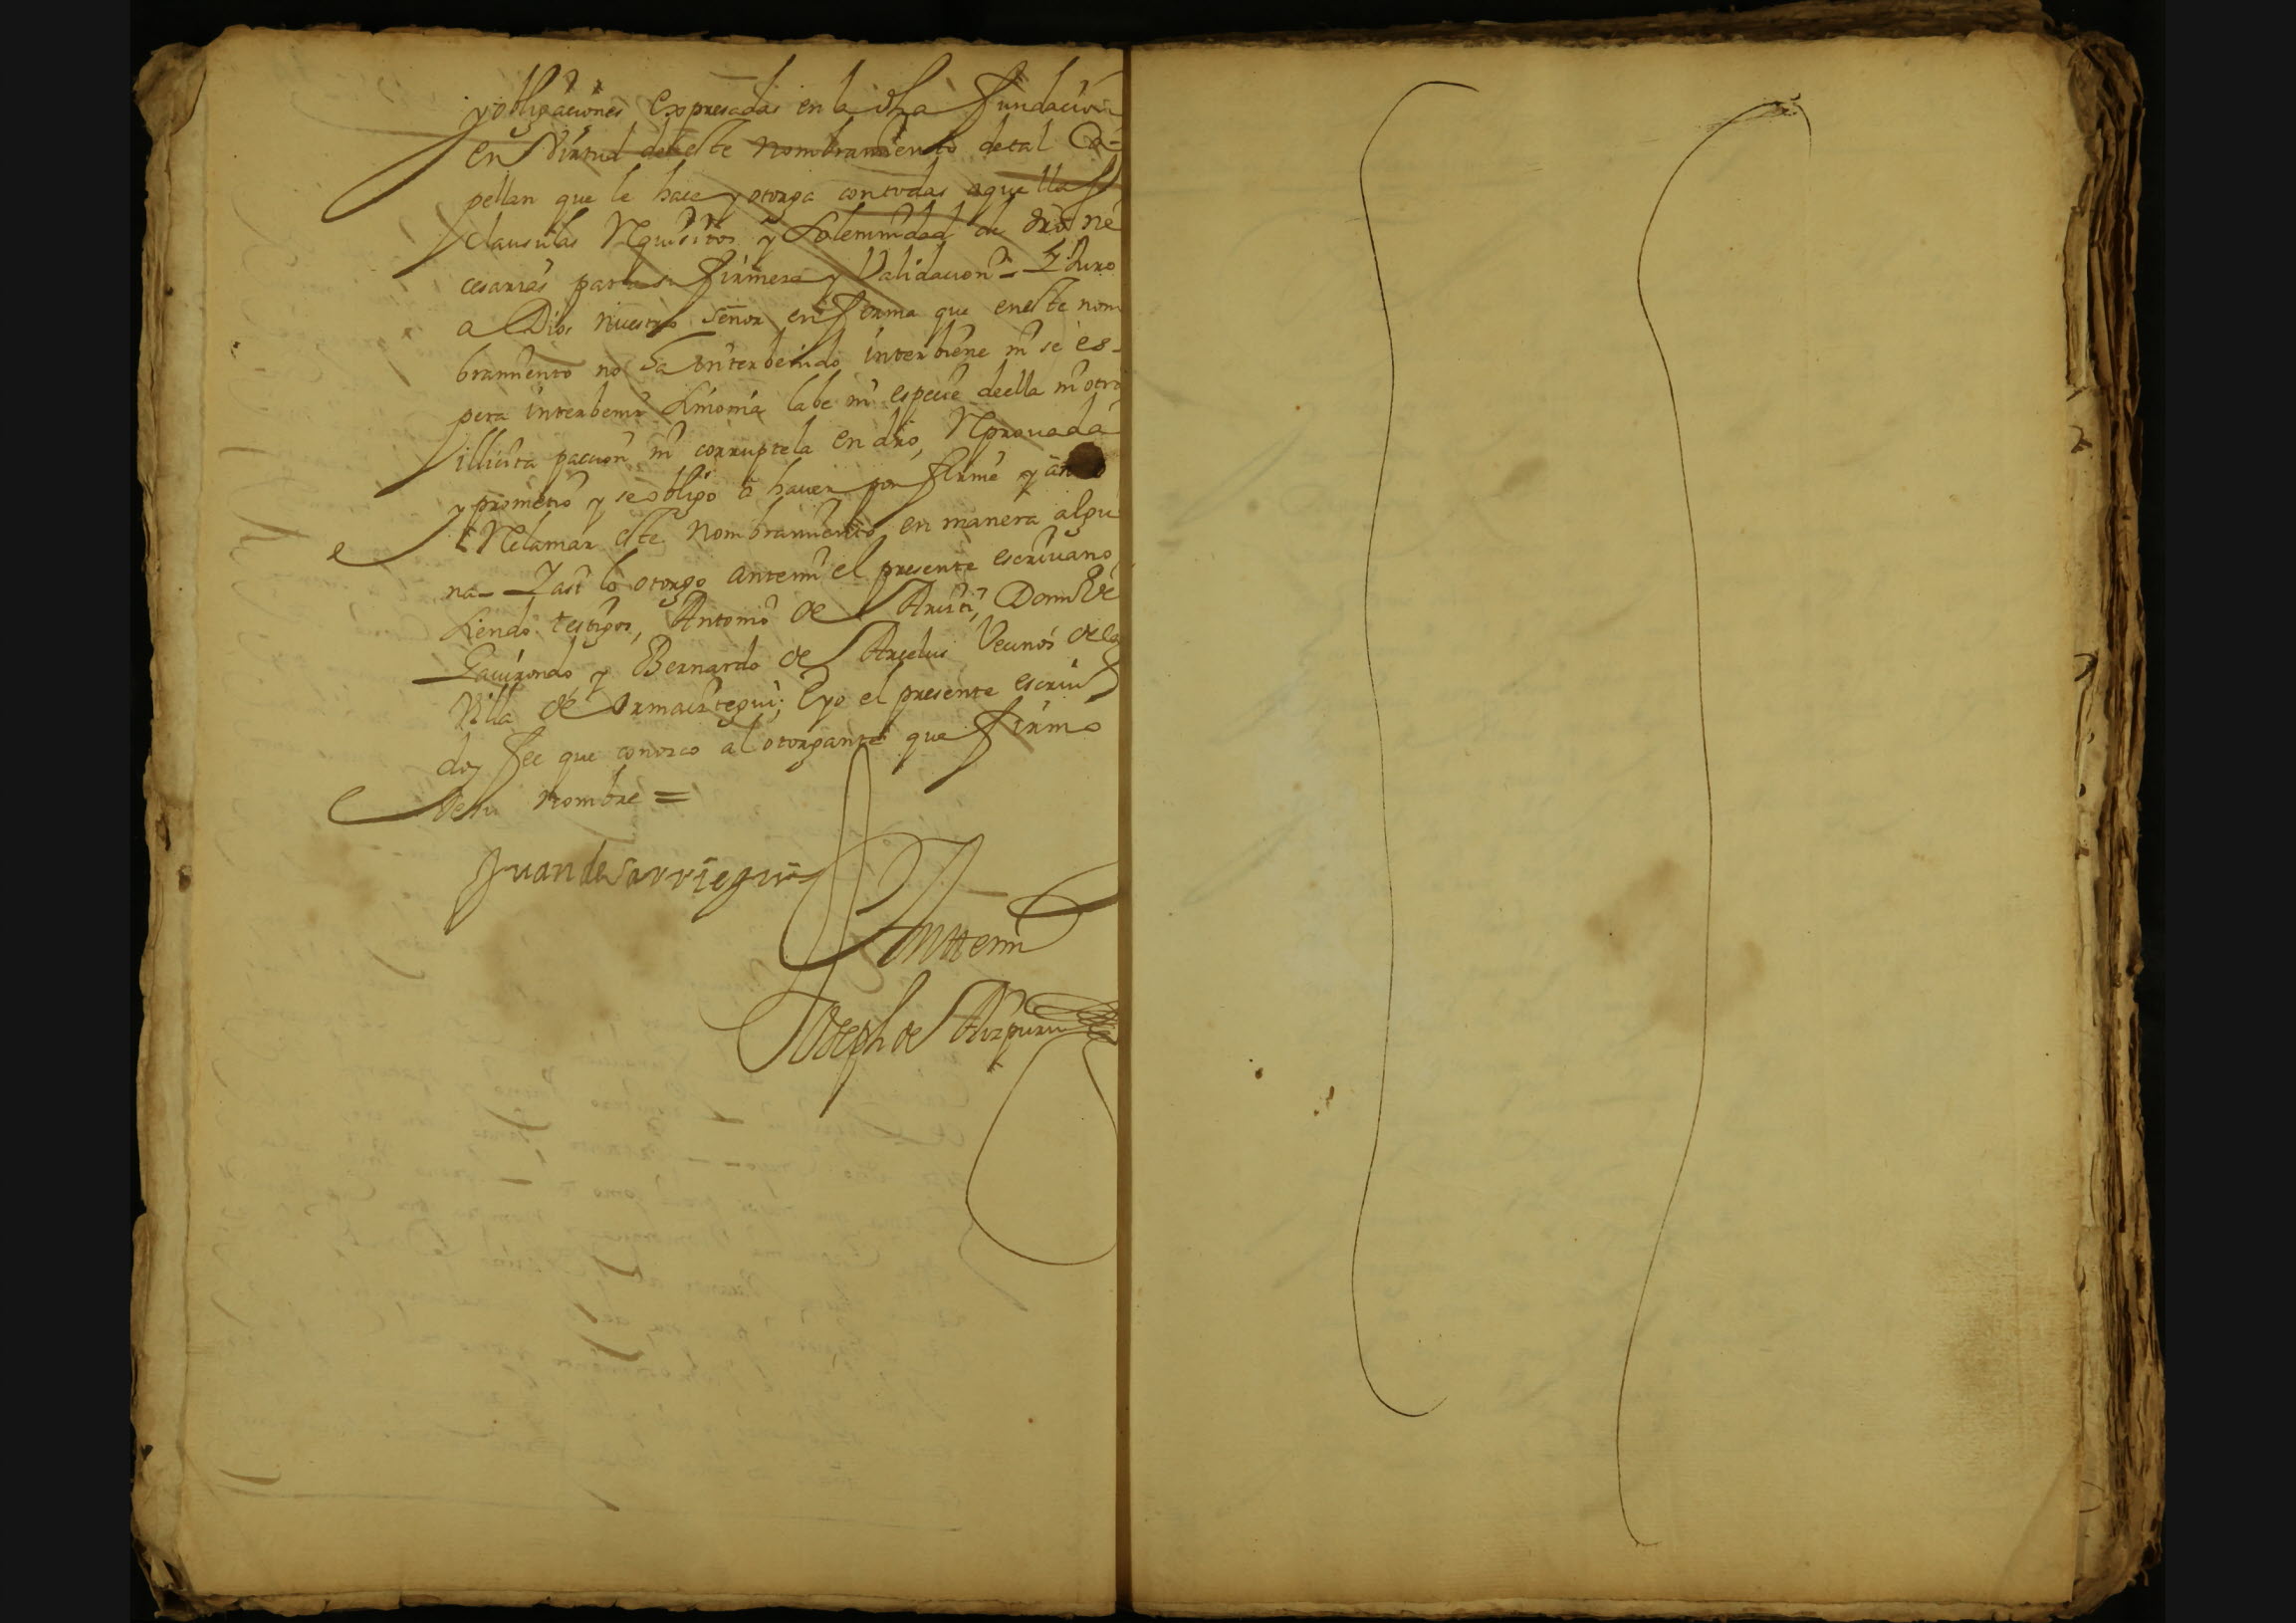 y obligaciones expresadas en la dha fundacion
en Virtud deeste nombramiento de tal Ca-
pellan que le hace y otorga con todas aquellas
clausulas Requisitos y Solemnidad de dro ne
cesarias para su firmeza y Validacion - Y Juro
a Dios nuestro Señor en forma que eneste nom
bramiento no ha interbenido interbiene ni se es-
pera interbenir Simonia labe ni especie deella ni otra
illicita paccion ni corruptela en dro, Reprouada
y prometio y se obligo a hauer por firme y a no
Reclamar este nombramiento en manera algu
na - Y asi lo otorgo antemi el presente escriuano
Siendo testigos, Antonio de Aristi, Domingo de
Yauirondo, y Bernardo de Arcelus Vecinos de la
Villa de Ormaiztegui; E yo el presente escriuano
doy fee que conozco al otorgante que firmo
de su nombre =
Juan de Sarriegui
Anttemi
Joseph de Aizpuru